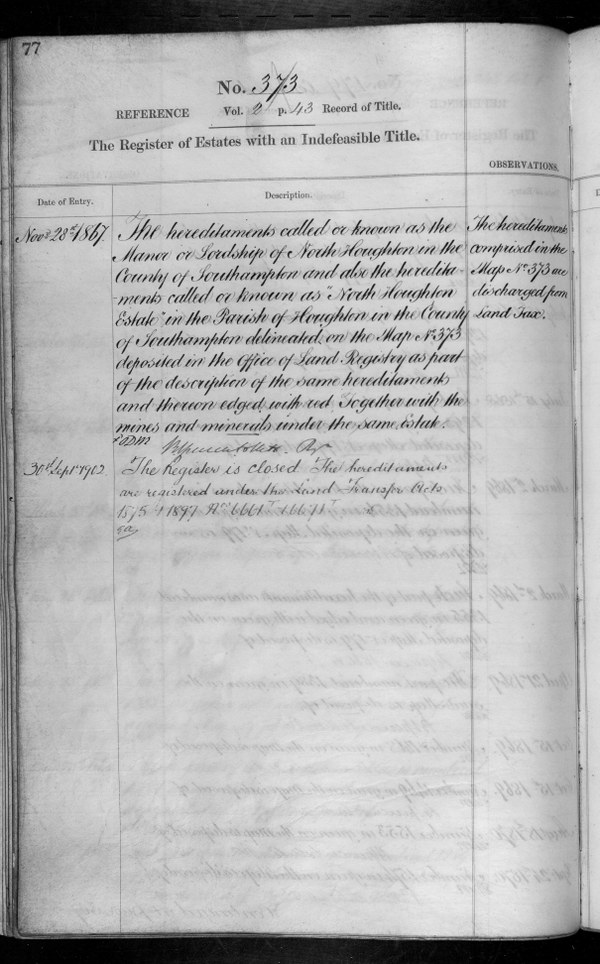 77
No. 373
REFERENCE Vol. 2 p. 43 Record of Title.
The Register of Estates with an Indefeasible Title.
OBSERVATIONS.
Date of Entry.
Description.
Novr. 28th 1867.
The hereditaments called or known as the
Manor or Lordship of North Houghton in the
County of Southampton and also the heredita-
-ments called or known as "North Houghton
Estate" in the Parish of Houghton in the County
of Southampton delineated on the Map No. 373
deposited in the Office of Land Registry as part
of the description of the same hereditaments
and thereon edged with red Together with the
mines and minerals under the same Estate.
The hereditaments
comprised in the
Map No. 373 are
discharged from
Land Tax.
30th Septr 1902.
The Register is closed The hereditaments
are registered under the Land Transfer Acts
1875 & 1897